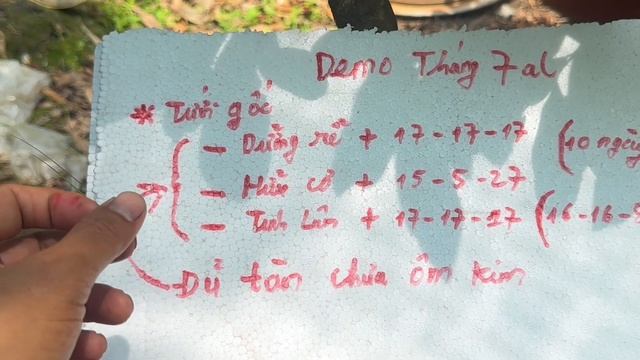 Demo Tháng 7 al
* Tưới gốc
- Dưỡng rễ + 17-17-17 (10 ngày
- Hữu cơ + 15-5-27
- Tinh Lân + 17-17-17 (16-16-8
Đủ tàn chưa ôm kim